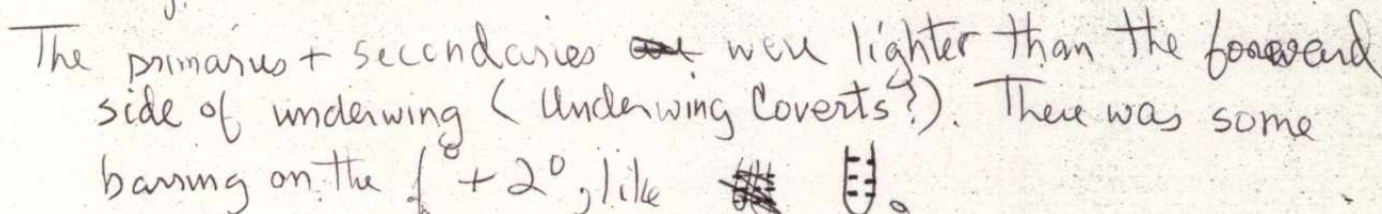 The primaries + secondaries were lighter than the foreward
side of underwing (Underwing Coverts?). There was some
barring on the 1° + 2°, like